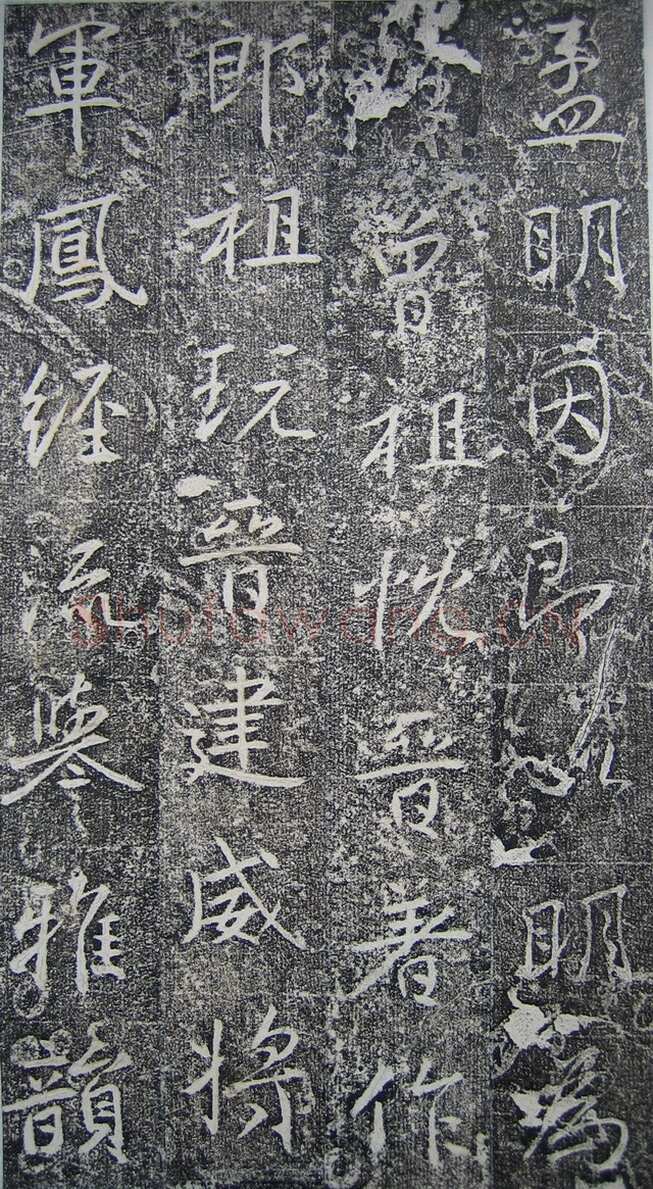 孟明因即明為
曾祖恍晉著作
郎祖玩晉建威將
軍鳳經流譽雅韻
shufawang.cn